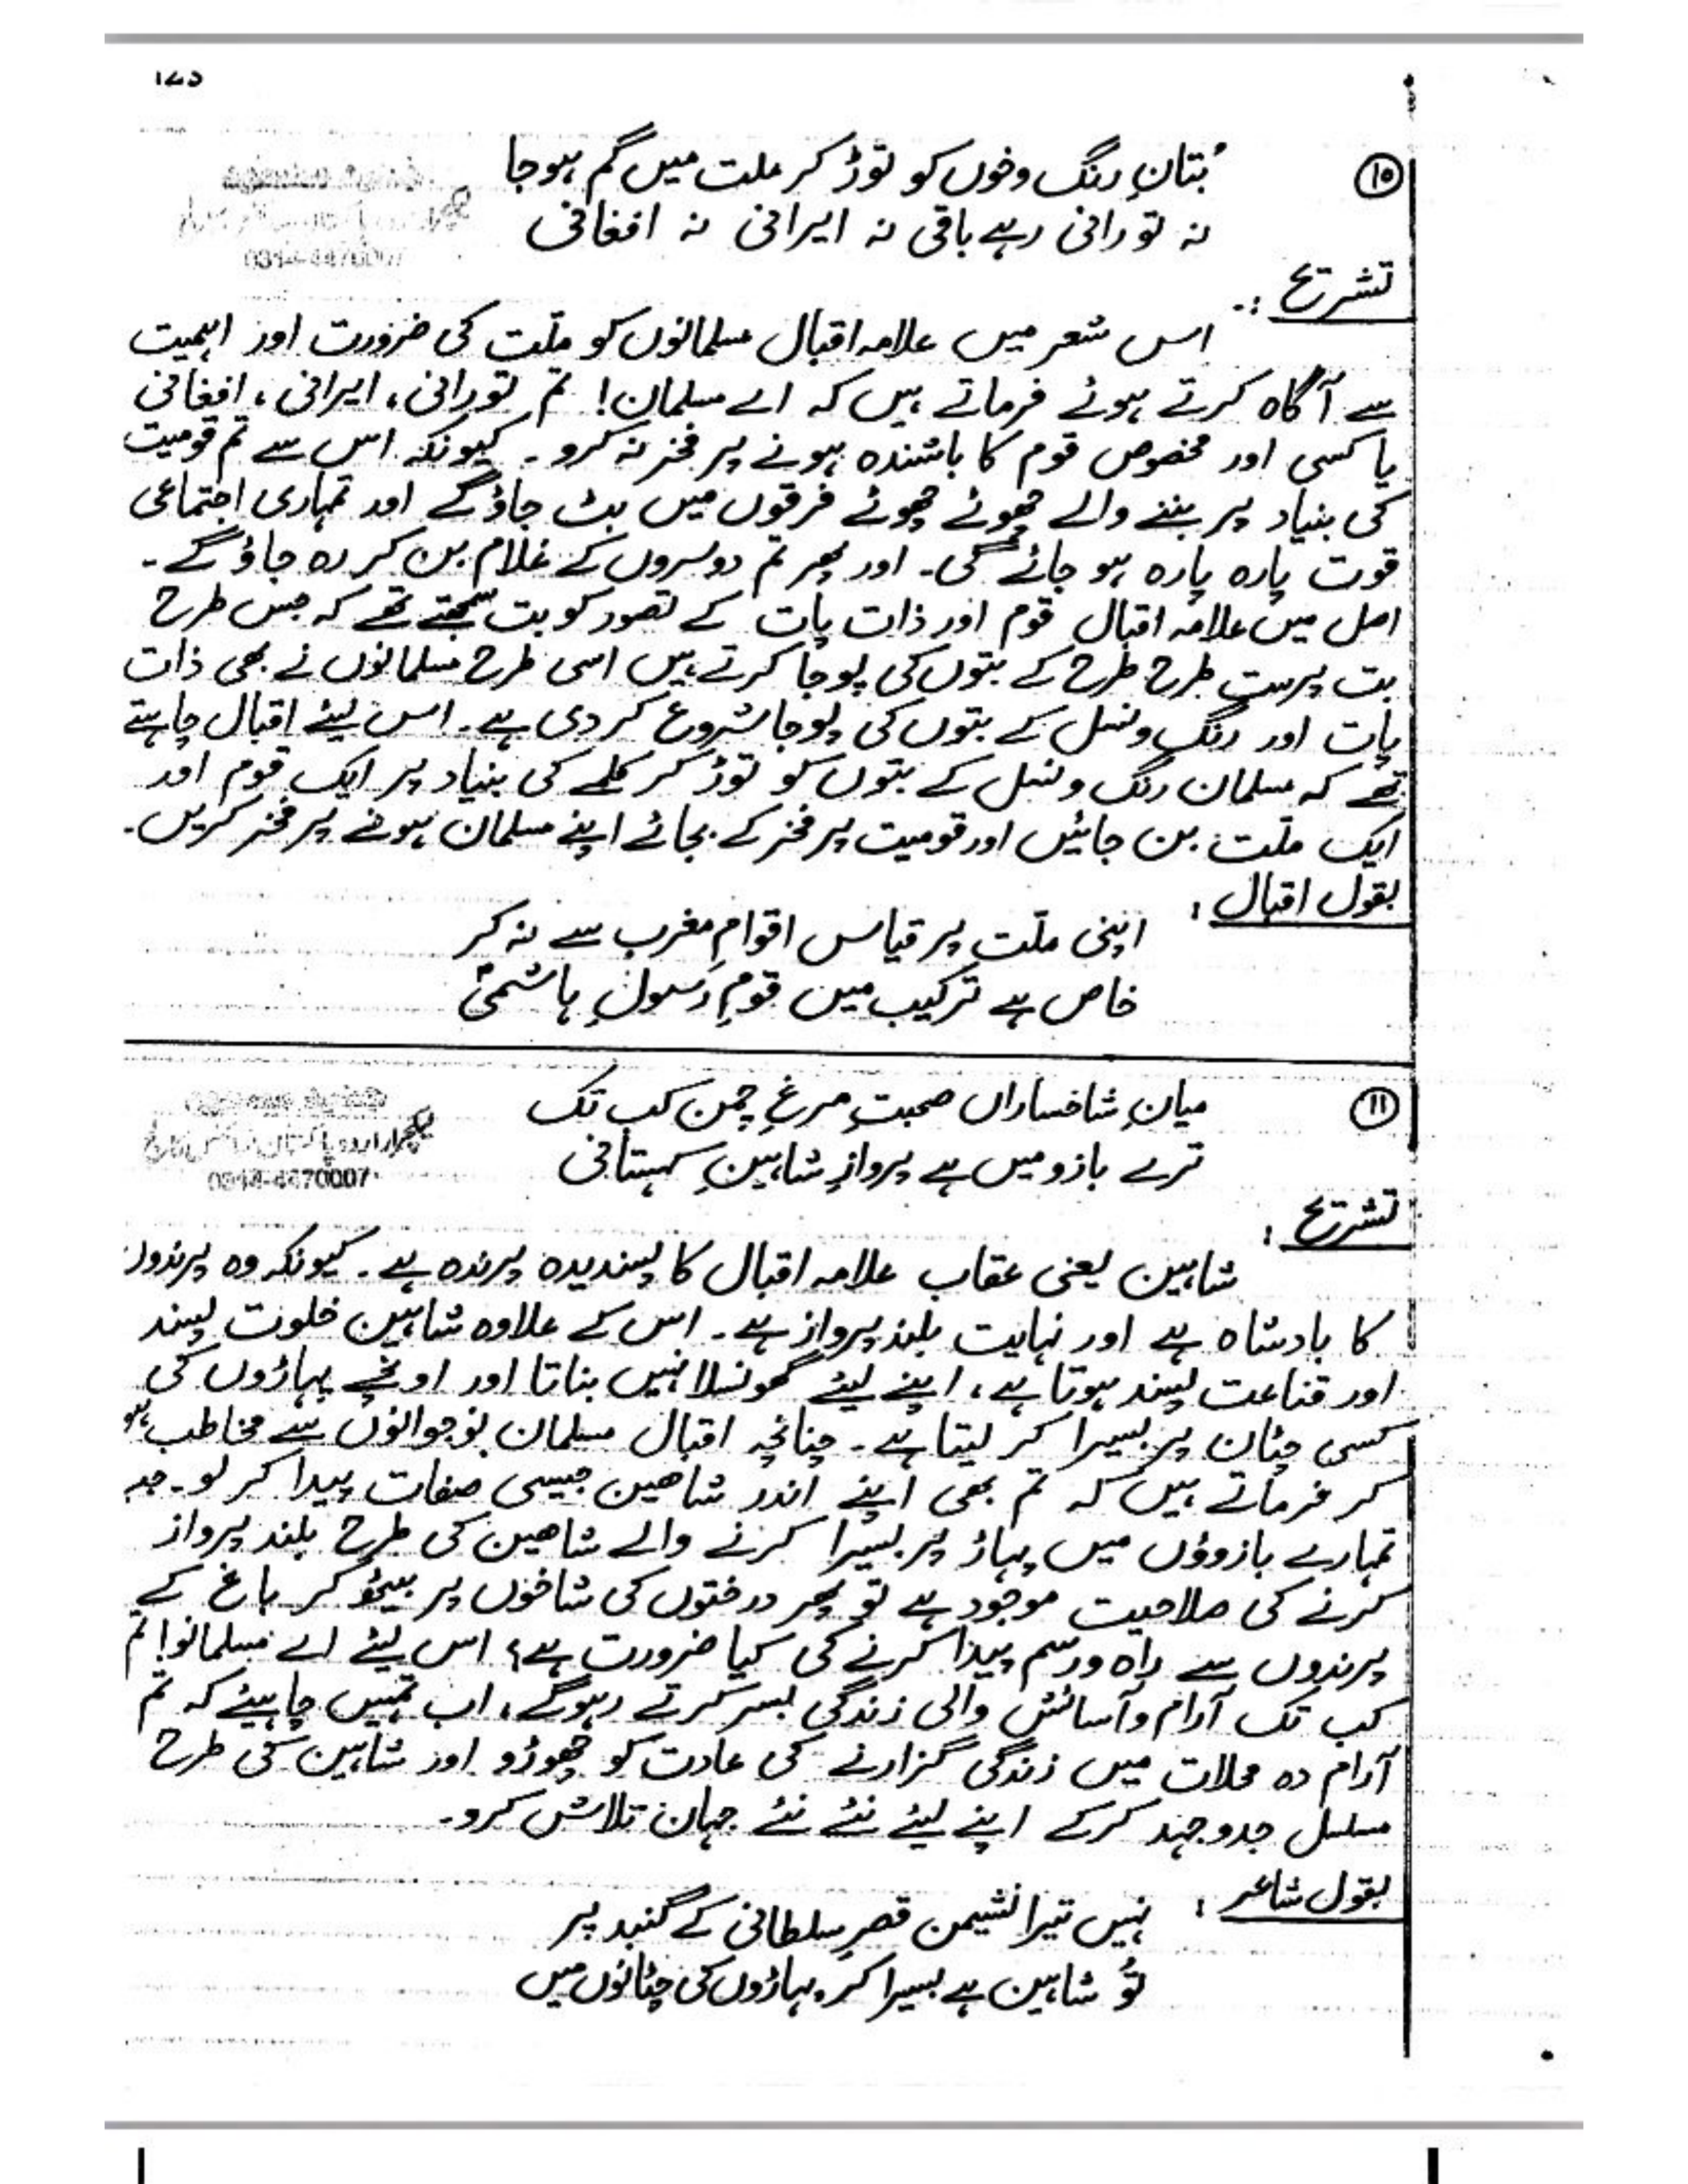 ۱۰
بُتانِ رنگ و خوں کو توڑ کر ملت میں گم ہو جا
نہ تورانی رہے باقی نہ ایرانی نہ افغانی
0314-4470007
تشریح :۔
اس شعر میں علامہ اقبال مسلمانوں کو ملّت کی ضرورت اور اہمیت
سے آگاہ کرتے ہوئے فرماتے ہیں کہ اے مسلمان! تم تورانی، ایرانی، افغانی
یا کسی اور مخصوص قوم کا باشندہ ہونے پر فخر نہ کرو۔ کیونکہ اس سے تم قومیت
کی بنیاد پر بننے والے چھوٹے چھوٹے فرقوں میں بٹ جاؤ گے اور تمہاری اجتماعی
قوت پارہ پارہ ہو جائے گی۔ اور پھر تم دوسروں کے غلام بن کر رہ جاؤ گے۔
اصل میں علامہ اقبال قوم اور ذات پات کے تصور کو بت سمجھتے تھے کہ جس طرح
بت پرست طرح طرح کے بتوں کی پوجا کرتے ہیں اسی طرح مسلمانوں نے بھی ذات
پات اور رنگ و نسل کے بتوں کی پوجا شروع کر دی ہے۔ اس لیئے اقبال چاہتے
تھے کہ مسلمان رنگ و نسل کے بتوں کو توڑ کر کلمے کی بنیاد پر ایک قوم اور
ایک ملّت بن جائیں اور قومیت پر فخر کے بجائے اپنے مسلمان ہونے پر فخر کریں۔
بقول اقبال :
اپنی ملّت پر قیاس اقوامِ مغرب سے نہ کر
خاص ہے ترکیب میں قومِ رَسولِ ہاشمیؐ
۱۱
میانِ شاخساراں صحبتِ مرغِ چمن کب تک
ترے بازو میں ہے پروازِ شاہینِ کہستانی
0314-4470007
تشریح :
شاہین یعنی عقاب علامہ اقبال کا پسندیدہ پرندہ ہے۔ کیونکہ وہ پرندوں
کا بادشاہ ہے اور نہایت بلند پرواز ہے۔ اس کے علاوہ شاہین خلوت پسند
اور قناعت پسند ہوتا ہے، اپنے لیئے گھونسلا نہیں بناتا اور اونچے پہاڑوں کی
کسی چٹان پر بسیرا کر لیتا ہے۔ چنانچہ اقبال مسلمان نوجوانوں سے مخاطب ہو
کر فرماتے ہیں کہ تم بھی اپنے اندر شاھین جیسی صفات پیدا کر لو۔ جب
تمہارے بازوؤں میں پہاڑ پر بسیرا کرنے والے شاھین کی طرح بلند پرواز
کرنے کی صلاحیت موجود ہے تو پھر درختوں کی شاخوں پر بیٹھ کر باغ کے
پرندوں سے راہ و رسم پیدا کرنے کی کیا ضرورت ہے؟ اس لیئے اے مسلمانو! تم
کب تک آرام و آسائش والی زندگی بسر کرتے رہو گے، اب تمہیں چاہیئے کہ تم
آرام دہ محلات میں زندگی گزارنے کی عادت کو چھوڑو اور شاہین کی طرح
مسلسل جدوجہد کرکے اپنے لیئے نئے نئے جہان تلاش کرو۔
بقول شاعر :
نہیں تیرا نشیمن قصرِ سلطانی کے گنبد پر
تُو شاہین ہے بسیرا کر پہاڑوں کی چٹانوں میں